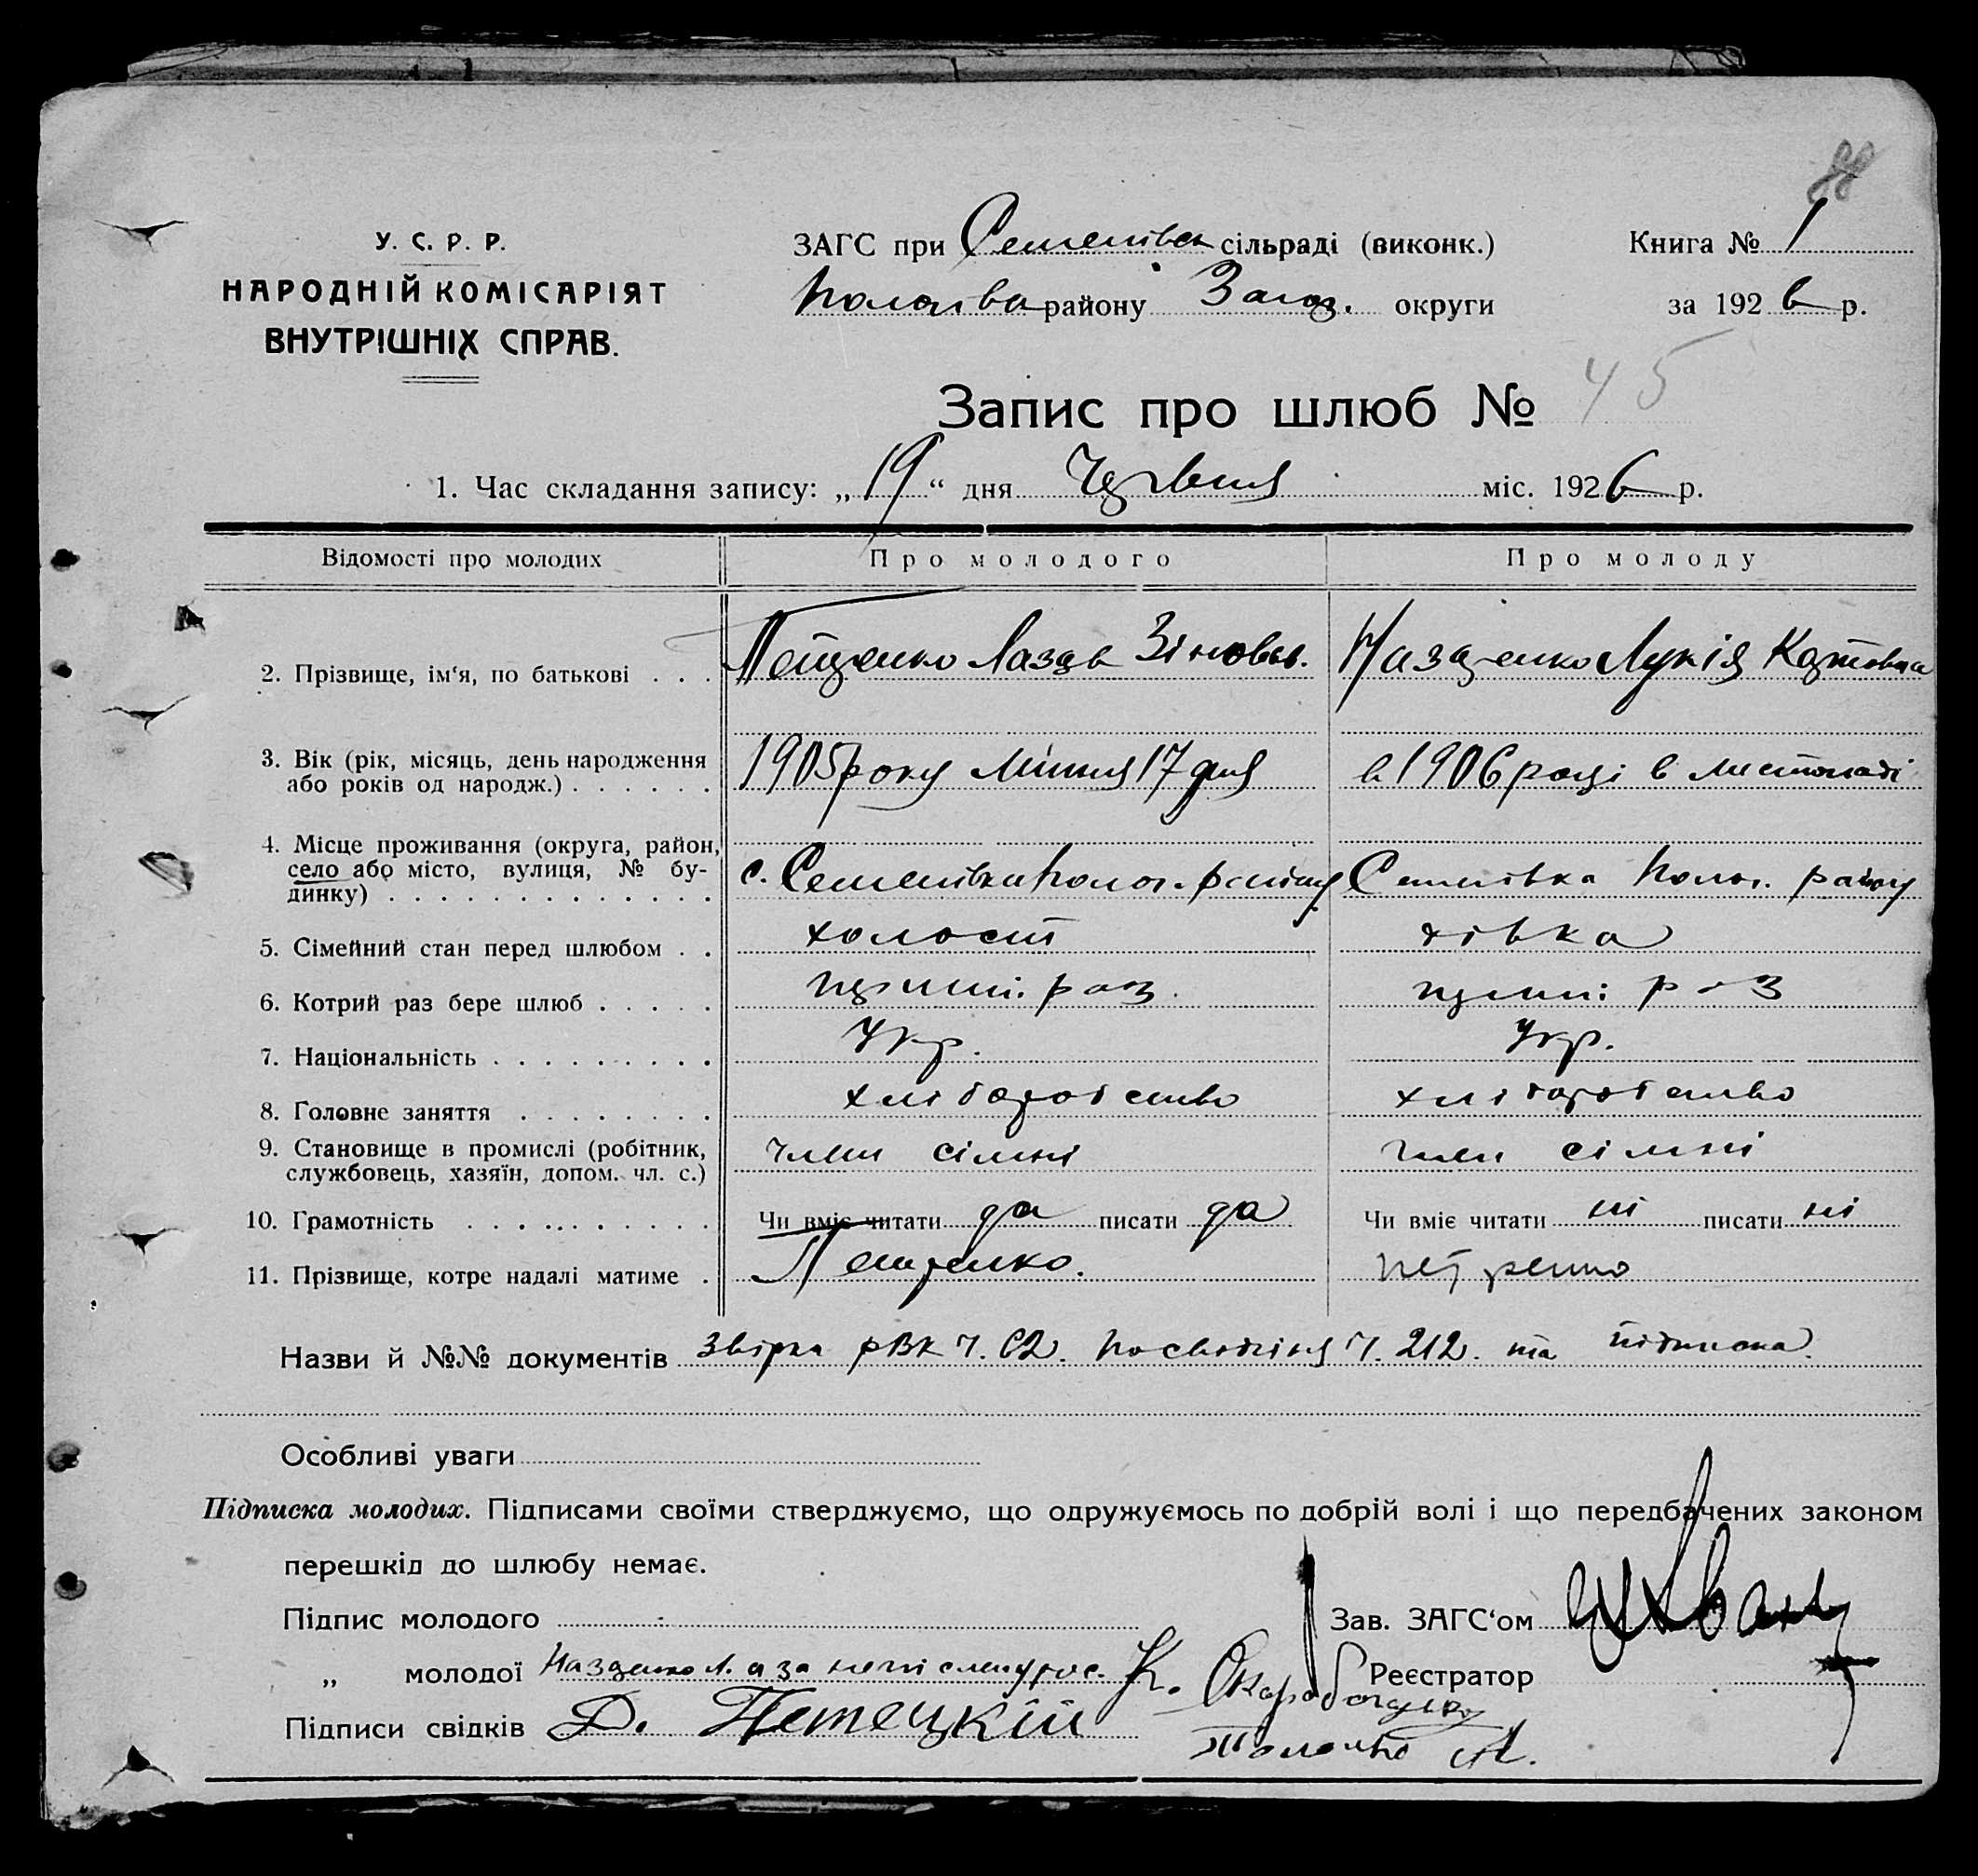 У. С. Р. Р.
НАРОДНІЙ КОМІСАРІЯТ
ВНУТРІШНІХ СПРАВ.
ЗАГС при Семенівск сільраді (виконк.)
району Запор. округи
Книга № 1
за 1926 р.
Запис про шлюб № 45
1. Час складання запису: „19“ дня Червня міс. 1926 р.
Відомості про молодих Про молодого Про молоду
2. Прізвище, ім‘я, по батькові . . . Лазар Зіновьев. Назаренко Лукія Карповна
3. Вік (рік, місяць, день народження
або років од народж.) . . . . . . 1905 року Липня 17 дня в 1906 році в листопаді
4. Місце проживання (округа, район,
село або місто, вулиця, № бу-
динку) . . . . . . . . . . . . . с. Семенівка Полог. району Семенівка Полог. району
5. Сімейний стан перед шлюбом . . холост дівка
6. Котрий раз бере шлюб . . . . . раз раз
7. Національність . . . . . . . . . Укр. Укр.
8. Головне заняття . . . . . . . . хліборобство хліборобство
9. Становище в промислі (робітник,
службовець, хазяїн, допом. чл. с.) член сімьї член сімьї
10. Грамотність . . . . . . . . . . Чи вміє читати да писати да Чи вміє читати ні писати ні
11. Прізвище, котре надалі матиме .
Назви й №№ документів Звірка РВК ч. 62. Посвідчіння ч. 212. та підписка.
Особливі уваги
Підписка молодих. Підписами своїми стверджуємо, що одружуємось по добрій волі і що передбачених законом
перешкід до шлюбу немає.
Підпис молодого
Зав. ЗАГС‘ом
„ молодої Назаренко Л. а за К.
Реєстратор
Підписи свідків Д.